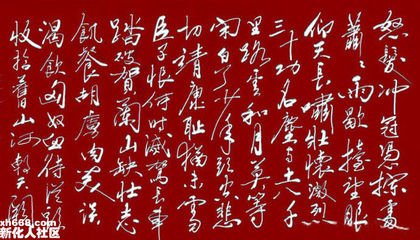 怒髮冲冠憑栏處
蕭〻雨歇抬望眼
仰天長嘯壯懷激烈
三十功名塵与土八千
里路雲和月莫等
闲白了少年頭空悲
切靖康耻猶未雪
臣子恨何时滅駕長車
踏破賀蘭山缺壮志
飢餐胡虜肉笑談
渴飲匈奴血待從頭
收拾舊山河朝天闕
xh668.com
新化人社区